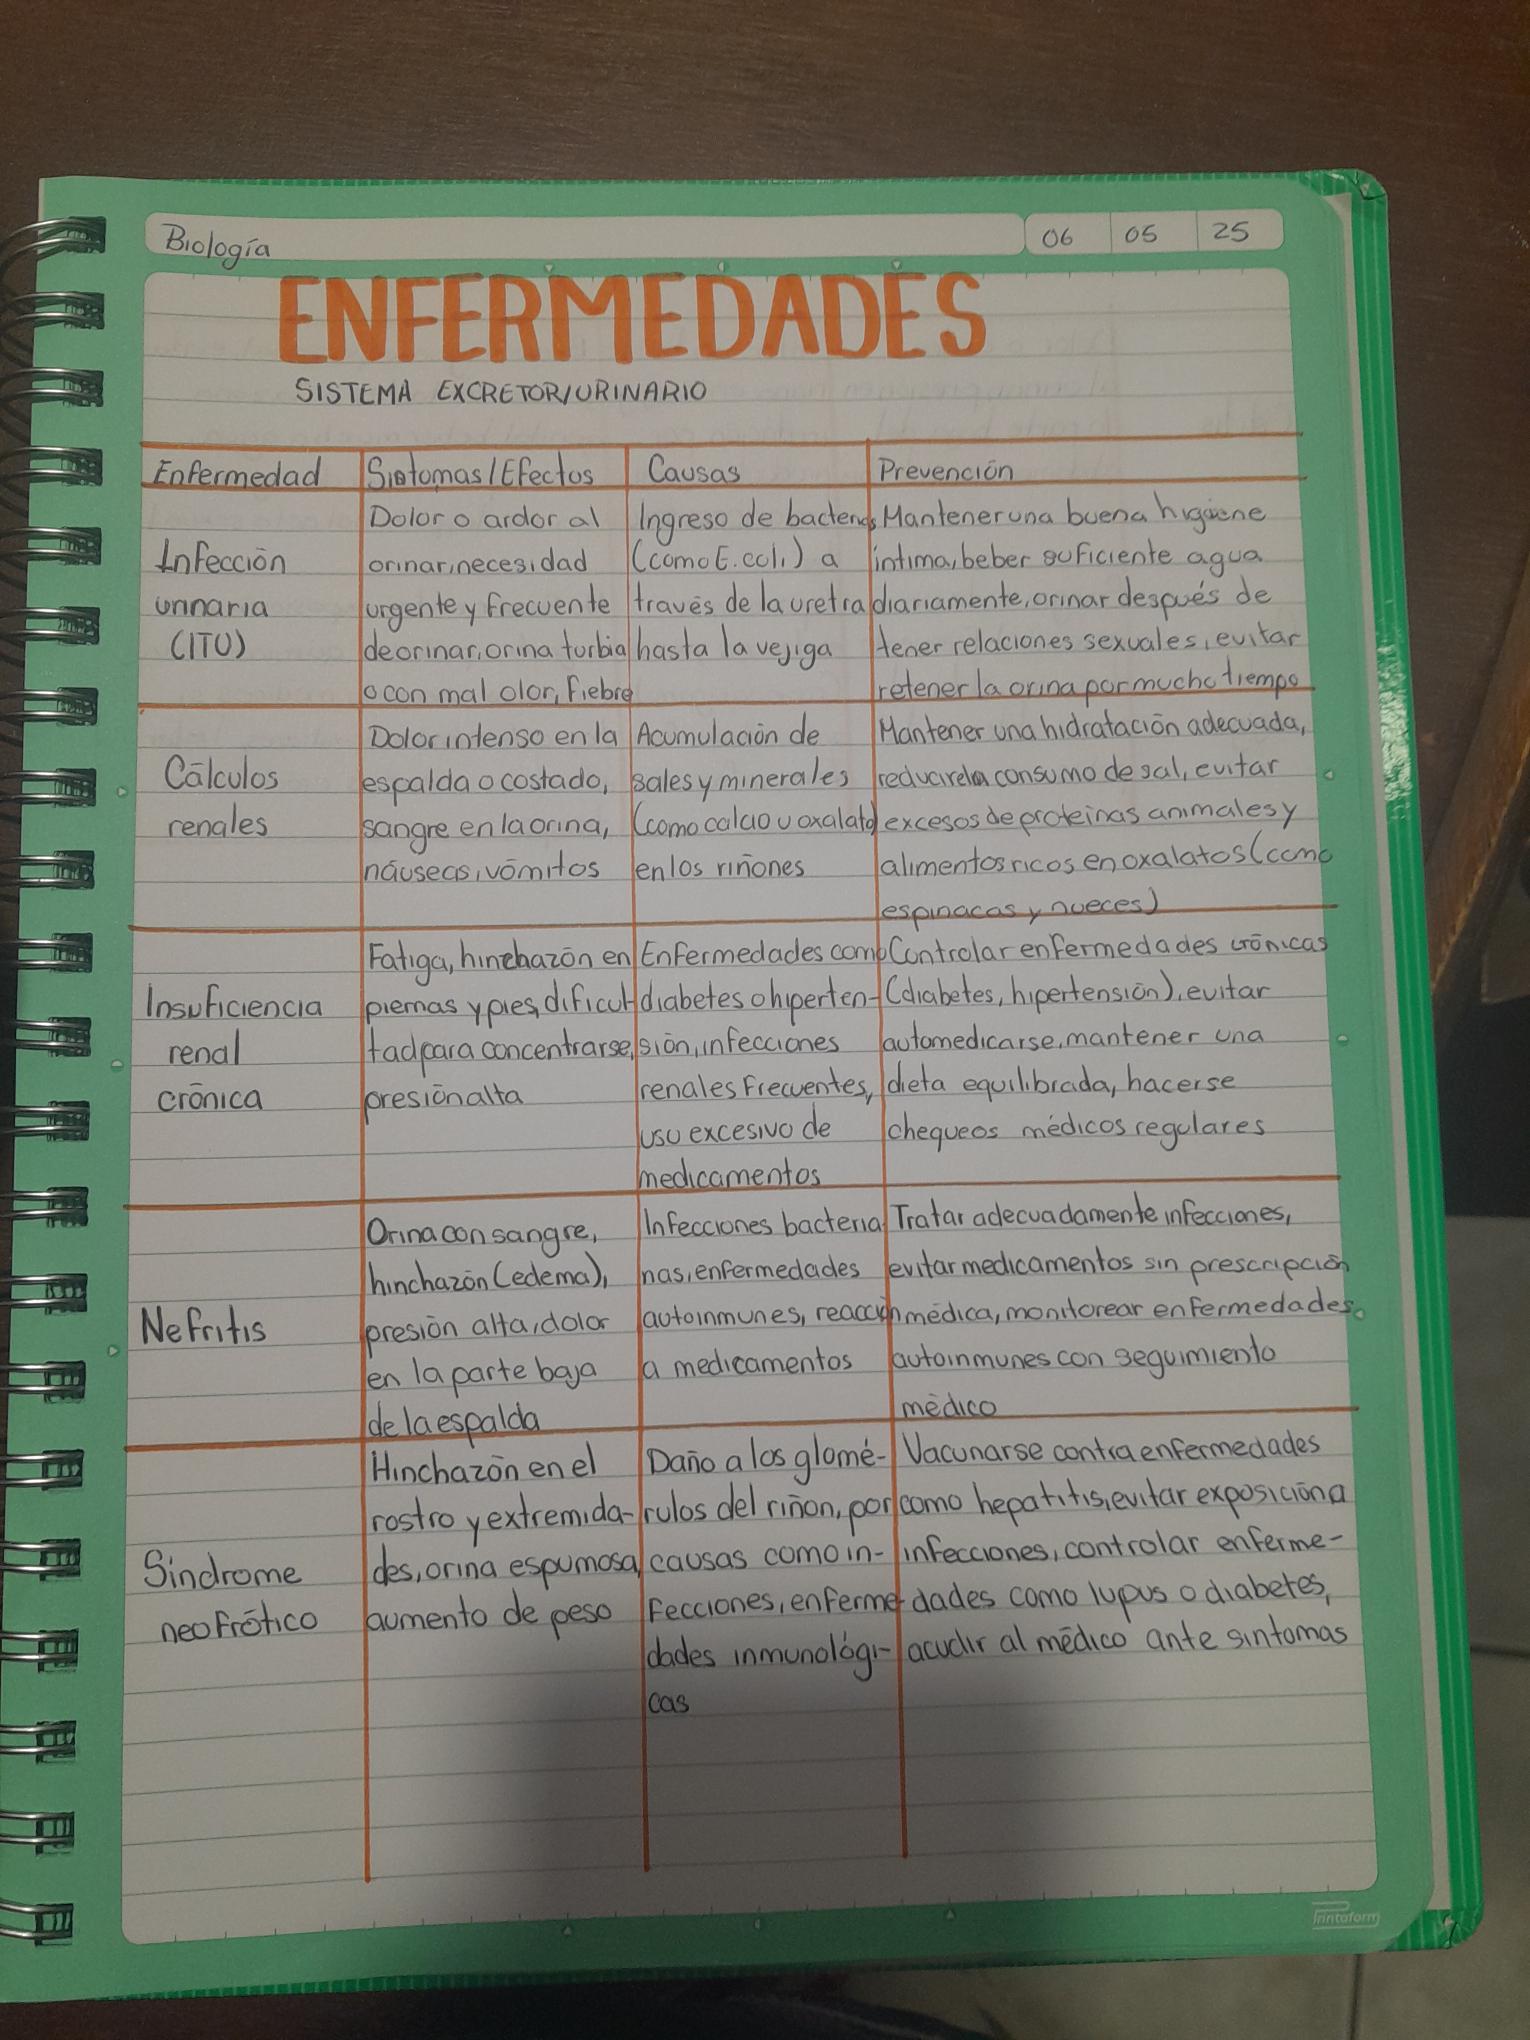 Biología
06 05 25
ENFERMEDADES
SISTEMA EXCRETOR/URINARIO
Enfermedad
Sintomas/Efectos
Causas
Prevención
Infección
urinaria
(ITU)
Dolor o ardor al
orinar, necesidad
urgente y frecuente
de orinar, orina turbia
o con mal olor, fiebre
Ingreso de bacterias
(como E. coli) a
través de la uretra
hasta la vejiga
Mantener una buena higiene
íntima, beber suficiente agua
diariamente, orinar después de
tener relaciones sexuales, evitar
retener la orina por mucho tiempo
Cálculos
renales
Dolor intenso en la
espalda o costado,
sangre en la orina,
náuseas, vómitos
Acumulación de
sales y minerales
(como calcio u oxalato)
en los riñones
Mantener una hidratación adecuada,
reducir el consumo de sal, evitar
excesos de proteínas animales y
alimentos ricos en oxalatos (como
espinacas y nueces)
Insuficiencia
renal
crónica
Fatiga, hinchazón en
piernas y pies, dificul-
tad para concentrarse,
presión alta
Enfermedades como
diabetes o hiperten-
sión, infecciones
renales frecuentes,
uso excesivo de
medicamentos
Controlar enfermedades crónicas
(diabetes, hipertensión), evitar
automedicarse, mantener una
dieta equilibrada, hacerse
chequeos médicos regulares
Nefritis
Orina con sangre,
hinchazón (edema),
presión alta, dolor
en la parte baja
de la espalda
Infecciones bacteria
nas, enfermedades
autoinmunes, reacción
a medicamentos
Tratar adecuadamente infecciones,
evitar medicamentos sin prescripción
médica, monitorear enfermedades
autoinmunes con seguimiento
médico
Síndrome
neofrótico
Hinchazón en el
rostro y extremida-
des, orina espumosa,
aumento de peso
Daño a los glomé-
rulos del riñon, por
causas como in-
fecciones, enferme-
dades inmunológi-
cas
Vacunarse contra enfermedades
como hepatitis, evitar exposición a
infecciones, controlar enferme-
dades como lupus o diabetes,
acudir al médico ante sintomas
Printaform